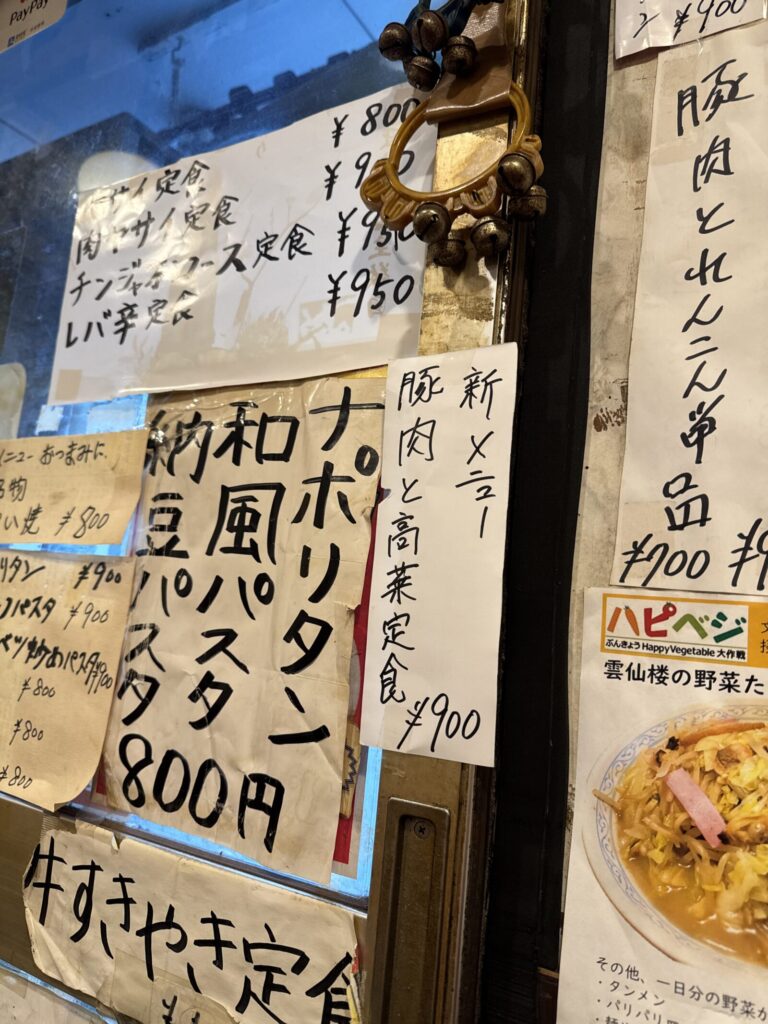 PayPay
¥800
サイ定食
肉ヤサイ定食 ¥9
チンジャオロース定食 ¥950
レバ辛定食 ¥950
ナポリタン
和風パスタ
納豆パスタ
800円
新メニュー
豚肉と高菜定食
¥900
メニュー おつまみに、
物
い焼 ¥800
リタン ¥900
パスタ ¥900
ベツ炒めパスタ
¥800
¥800
¥800
牛すきやき定食
¥900
豚肉とれんこん単品
¥700
ハピベジ
ぶんきょうHappyVegetable大作戦
雲仙楼の野菜た
その他、一日分の野菜が
・タンメン
・パリパリ